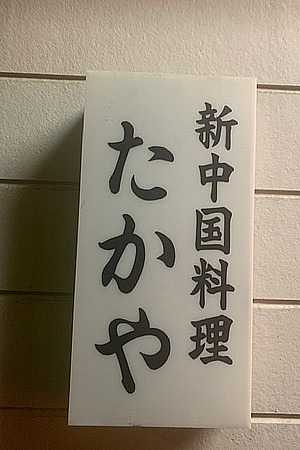 新中国料理
たかや